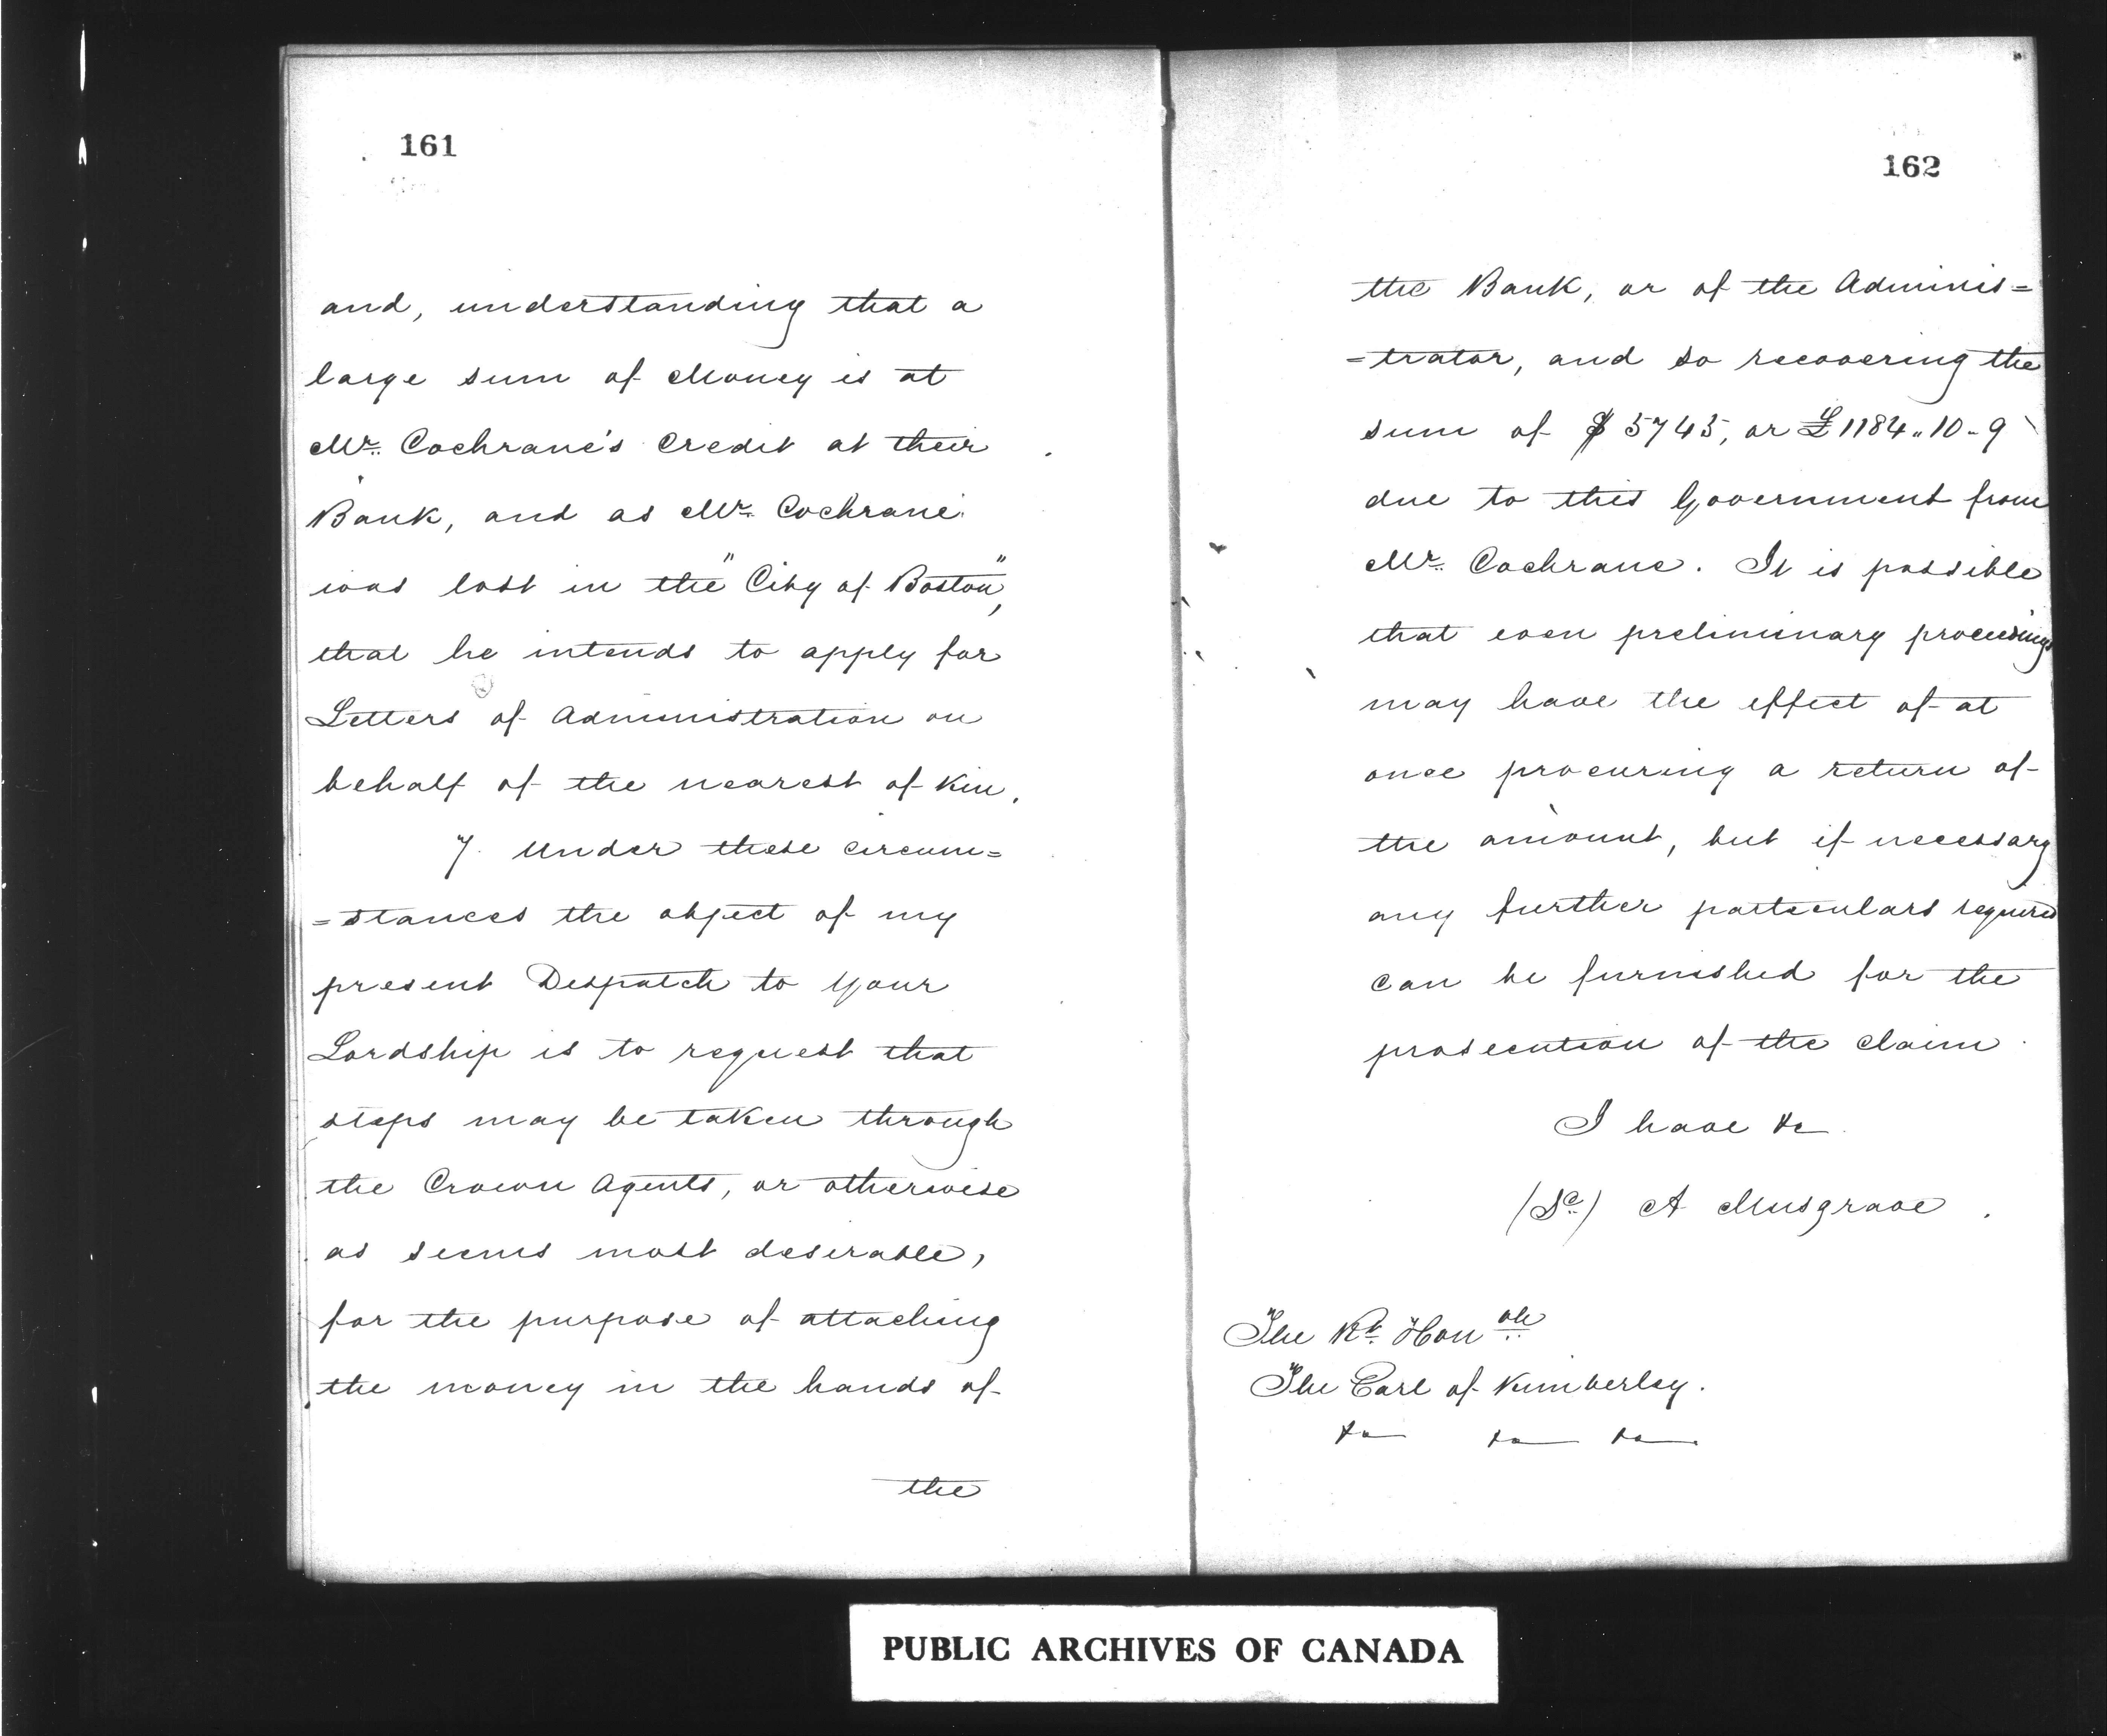 161
and, understanding that a
large sum of Money is at
Mr. Cochrane's Credit at their
Bank, and as Mr. Cochrane
was lost in the "City of Boston",
that he intends to apply for
Letters of Administration on
behalf of the nearest of Kin.
7. Under these circum=
=stances the object of my
present Despatch to Your
Lordship is to request that
steps may be taken through
the Crown Agents, or otherwise
as seems most desirable,
for the purpose of attaching
the money in the hands of
the
162
the Bank, or of the Adminis=
=trator, and so recovering the
sum of $5745, or £1184.,10-9
due to this Government from
Mr. Cochrane. It is possible
that even preliminary proceedings
may have the effect of at
once procuring a return of
the amount, but if necessary
any further particulars required
can be furnished for the
prosecution of the claim.
I have &c
(Sd.) A Musgrave.
The Rt. Honble
The Earl of Kimberley.
&c &c &c
PUBLIC ARCHIVES OF CANADA